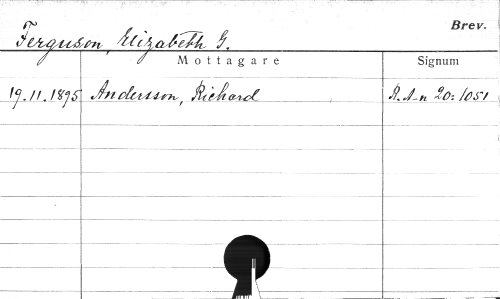 Brev.
Ferguson, Elizabeth G.
Mottagare Signum
19.11.1895 Andersson, Richard R.A-n 20:1051